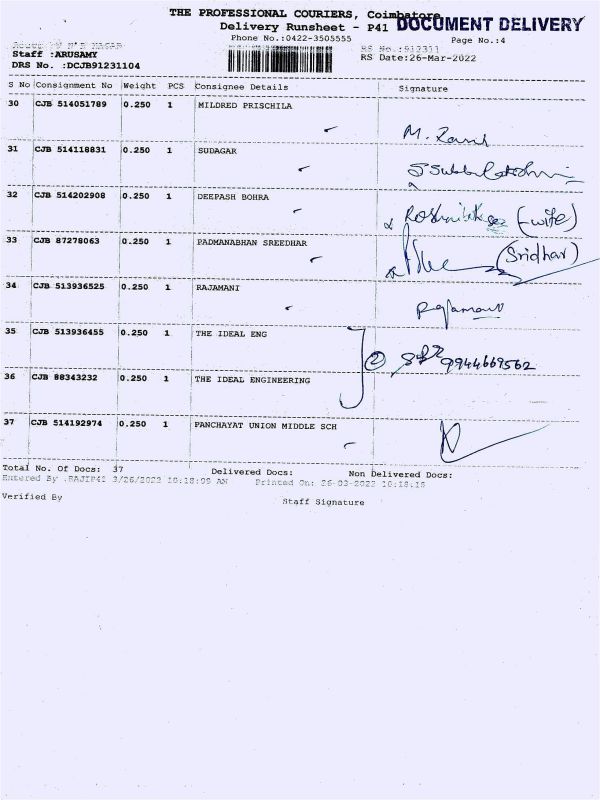 THE PROFESSIONAL COURIERS, Coimbatore
DOCUMENT DELIVERY
Delivery Runsheet - P41
Phone No.:0422-3505555
Page No.:4
Staff :ARUSAMY
RS No.:912311
DRS No. :DCJB91231104
RS Date:26-Mar-2022
S No Consignment No Weight PCS Consignee Details Signature
30 CJB 514051789 0.250 1 MILDRED PRISCHILA
31 CJB 514118831 0.250 1 SUDAGAR
32 CJB 514202908 0.250 1 DEEPASH BOHRA (-wife)
33 CJB 87278063 0.250 1 PADMANABHAN SREEDHAR (Sridhar)
34 CJB 513936525 0.250 1 RAJAMANI
35 CJB 513936455 0.250 1 THE IDEAL ENG
2 9944669562
36 CJB 88343232 0.250 1 THE IDEAL ENGINEERING
37 CJB 514192974 0.250 1 PANCHAYAT UNION MIDDLE SCH
Total No. Of Docs: 37 Delivered Docs: Non Delivered Docs:
Entered By :RAJIP41 3/26/2022 10:18:09 AM Printed On: 26-03-2022 10:18:18
Verified By Staff Signature